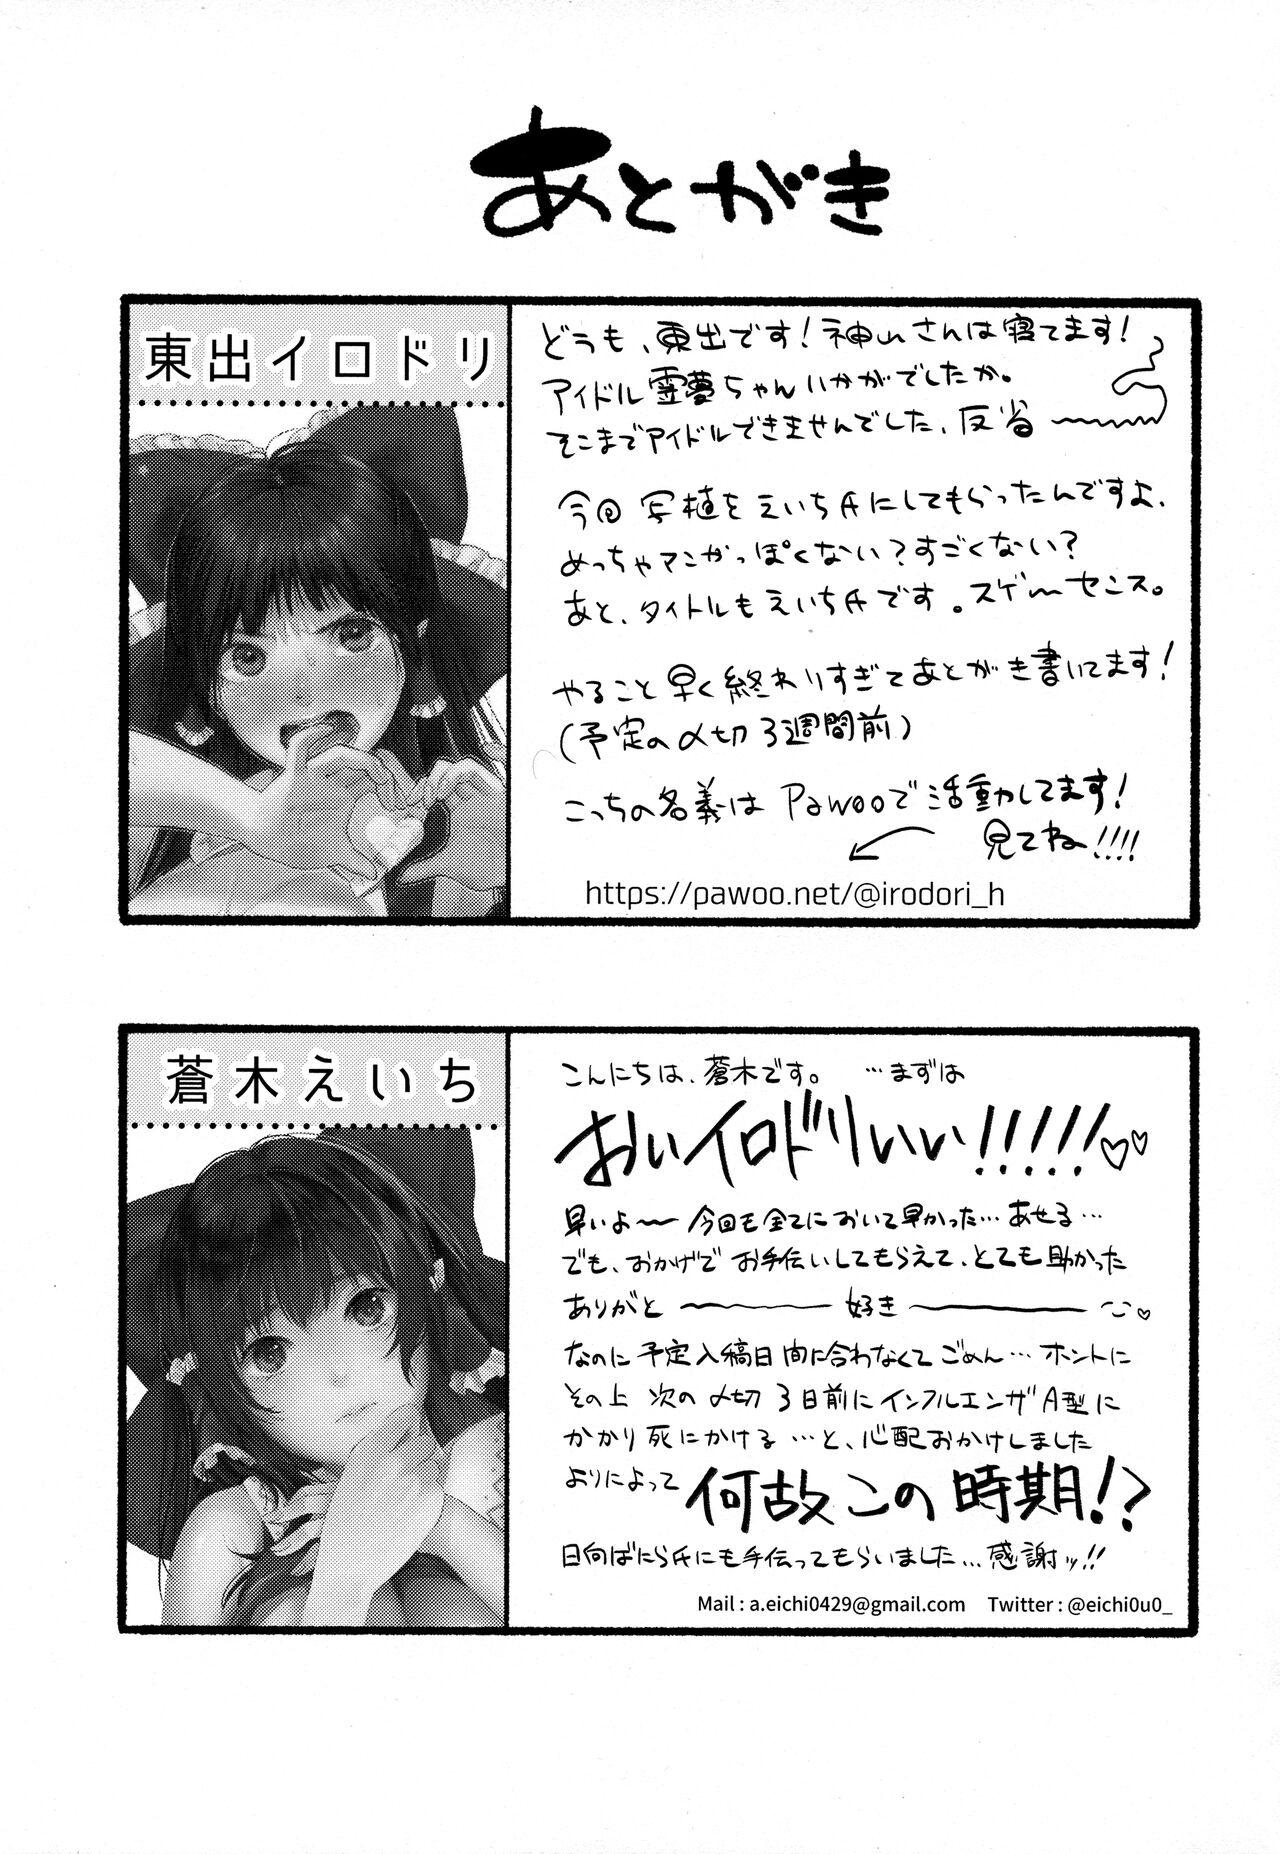 あとがき
東出イロドリ
どうも、東出です！神山さんは寝てます！
アイドル霊夢ちゃんいかがでしたか。
そこまでアイドルできませんでした、反省〜
今回写植をえいち氏にしてもらったんですよ、
めっちゃマンガっぽくない？すごくない？
あと、タイトルもえいち氏です。スゲ〜センス。
やること早く終わりすぎてあとがき書いてます！
(予定の〆切3週間前)
こっちの名義はPawooで活動してます！
見てね!!!!
https://pawoo.net/@irodori_h
蒼木えいち
こんにちは、蒼木です。…まずは
おいイロドリいい!!!!!♡♡
早いよ〜今回も全てにおいて早かった…あせる…
でも、おかげでお手伝いしてもらえて、とても助かった
ありがと〜好き〜♡
なのに予定入稿日間に合わなくてごめん…ホントに
その上次の〆切3日前にインフルエンザA型に
かかり死にかける…と、心配おかけしました
よりによって何故この時期!?
日向ばにら氏にも手伝ってもらいました…感謝ッ!!
Mail : a.eichi0429@gmail.com Twitter : @eichi0u0_